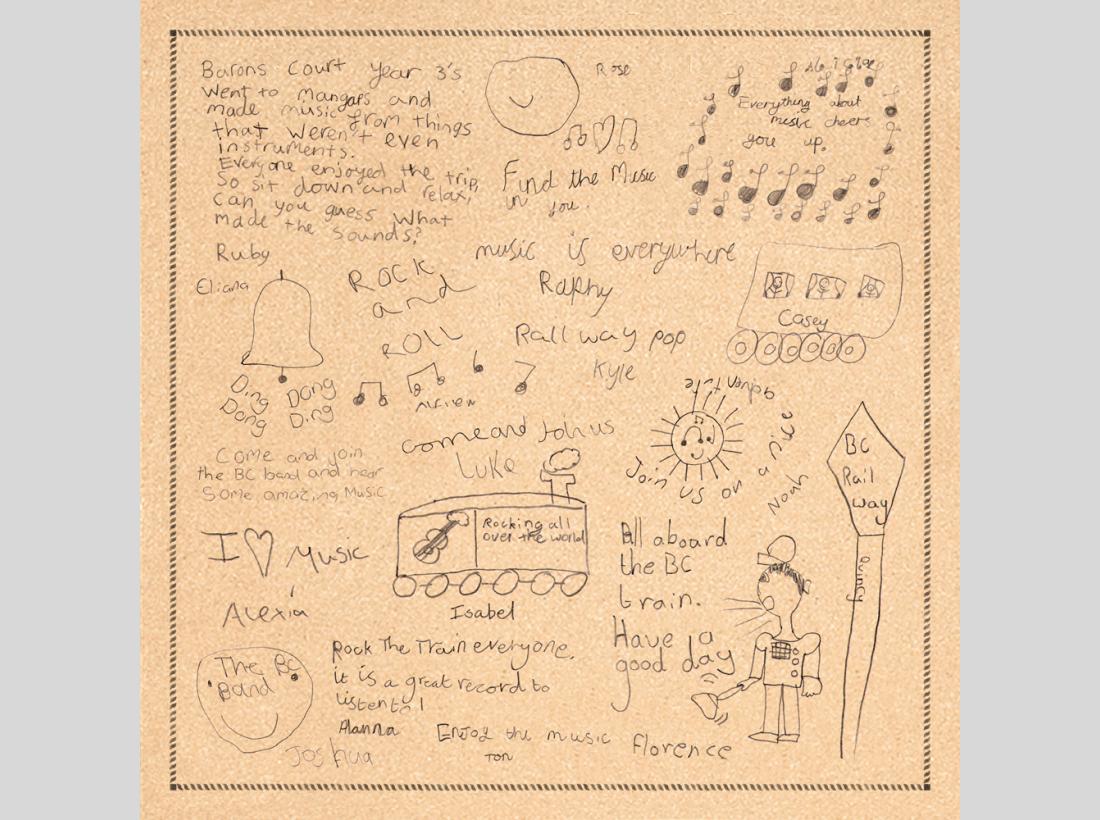 Barons Court Year 3's
went to mangaps and
made music from things
that weren't even
instruments.
Everyone enjoyed the trip,
So sit down and relax,
can you guess what
made the sounds?
Ruby
Rose
Find the Music
in you.
Everything about
music cheers
you up.
music is everywhere
Raphy
Eliana
Ding Dong
Dong Ding
ROCK
and
ROLL
Rall way pop
Kyle
Casey
come and Join us
Luke
Join us on a nice adventure
Noah
BC
Rail
way
Quincy
Come and join
the BC band and hear
Some amazing Music
I Music
Alexia
Rocking all
over the world
Isabel
All aboard
the BC
train.
Have a
good day
Florence
The BC
Band
Joshua
Rock The Train everyone,
it is a great record to
listen to!
Alanna
Enjoy the music
Tom